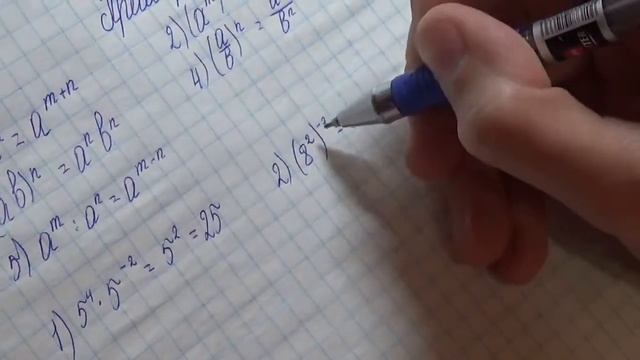 2) (a^m)
4) (a/b)^n = a^n/b^n
= a^{m+n}
ab)^n = a^n b^n
5) a^m : a^n = a^{m-n}
1) 5^4 · 5^{-2} = 5^2 = 25
2) (8^2)